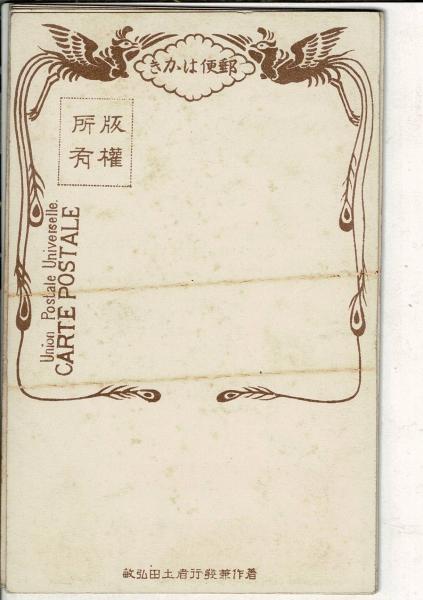 郵便はかき
版權
所有
Union Postale Universelle.
CARTE POSTALE
著作兼發行者土田弘敏